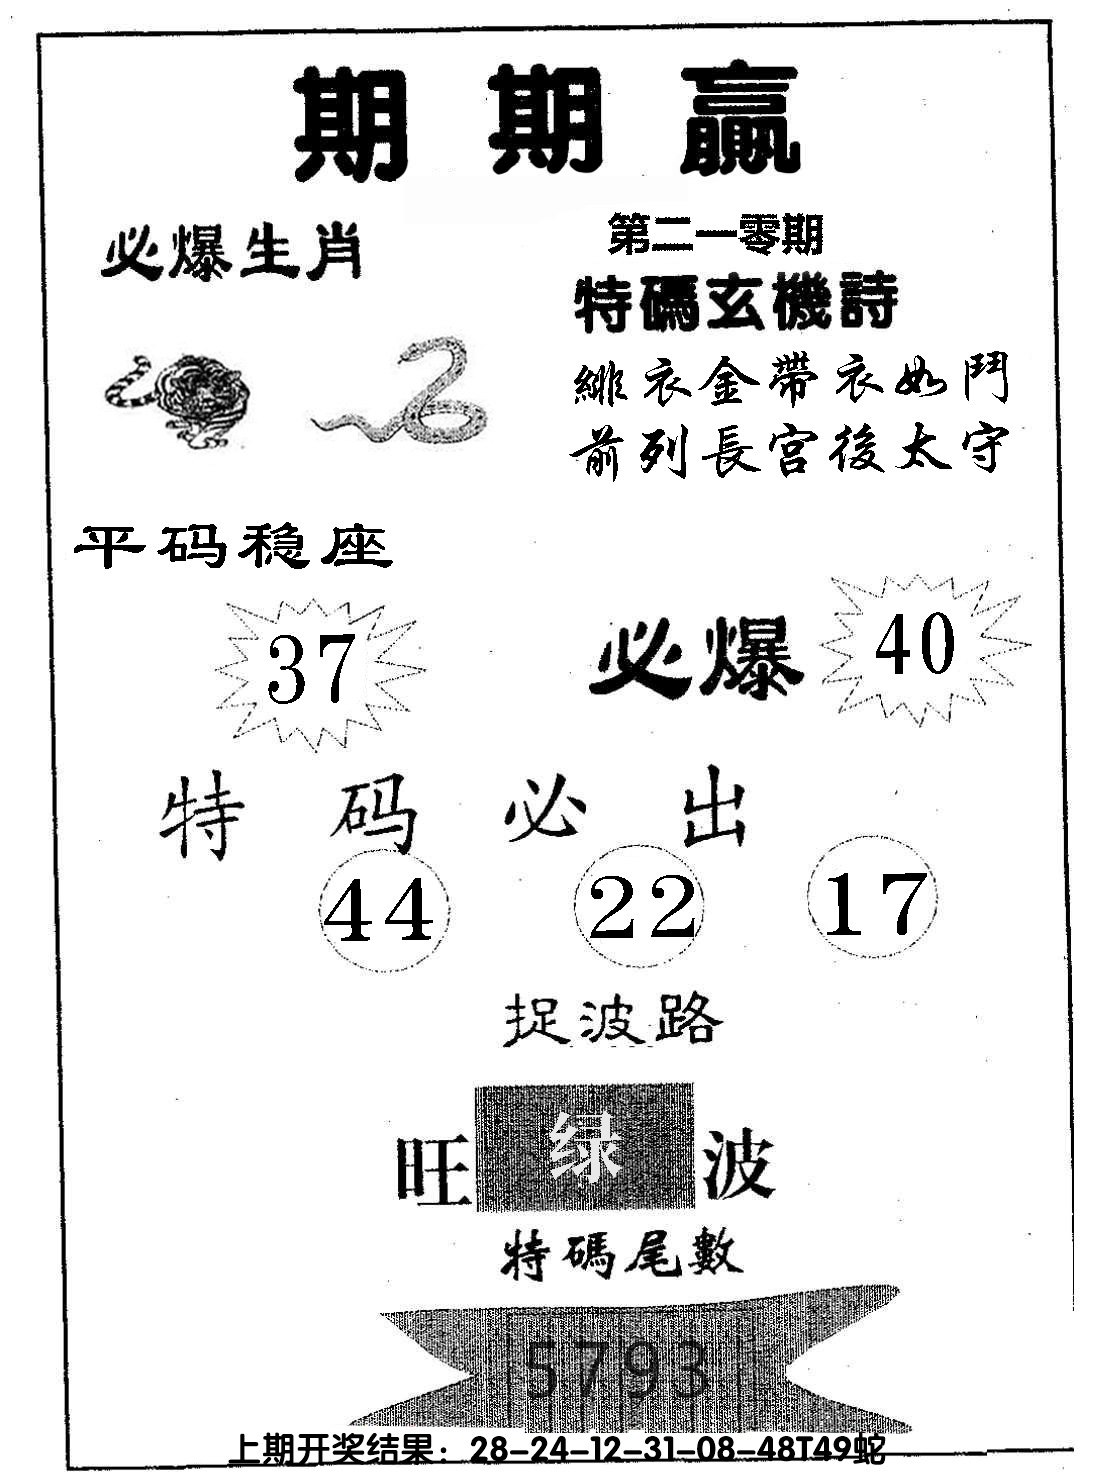 期期贏
必爆生肖
第二一零期
特碼玄機詩
緋衣金帶衣如鬥
前列長宮後太守
平码稳座
37
必爆
40
特码必出
44 22 17
捉波路
旺绿波
特碼尾數
5793
上期开奖结果：28-24-12-31-08-48T49蛇